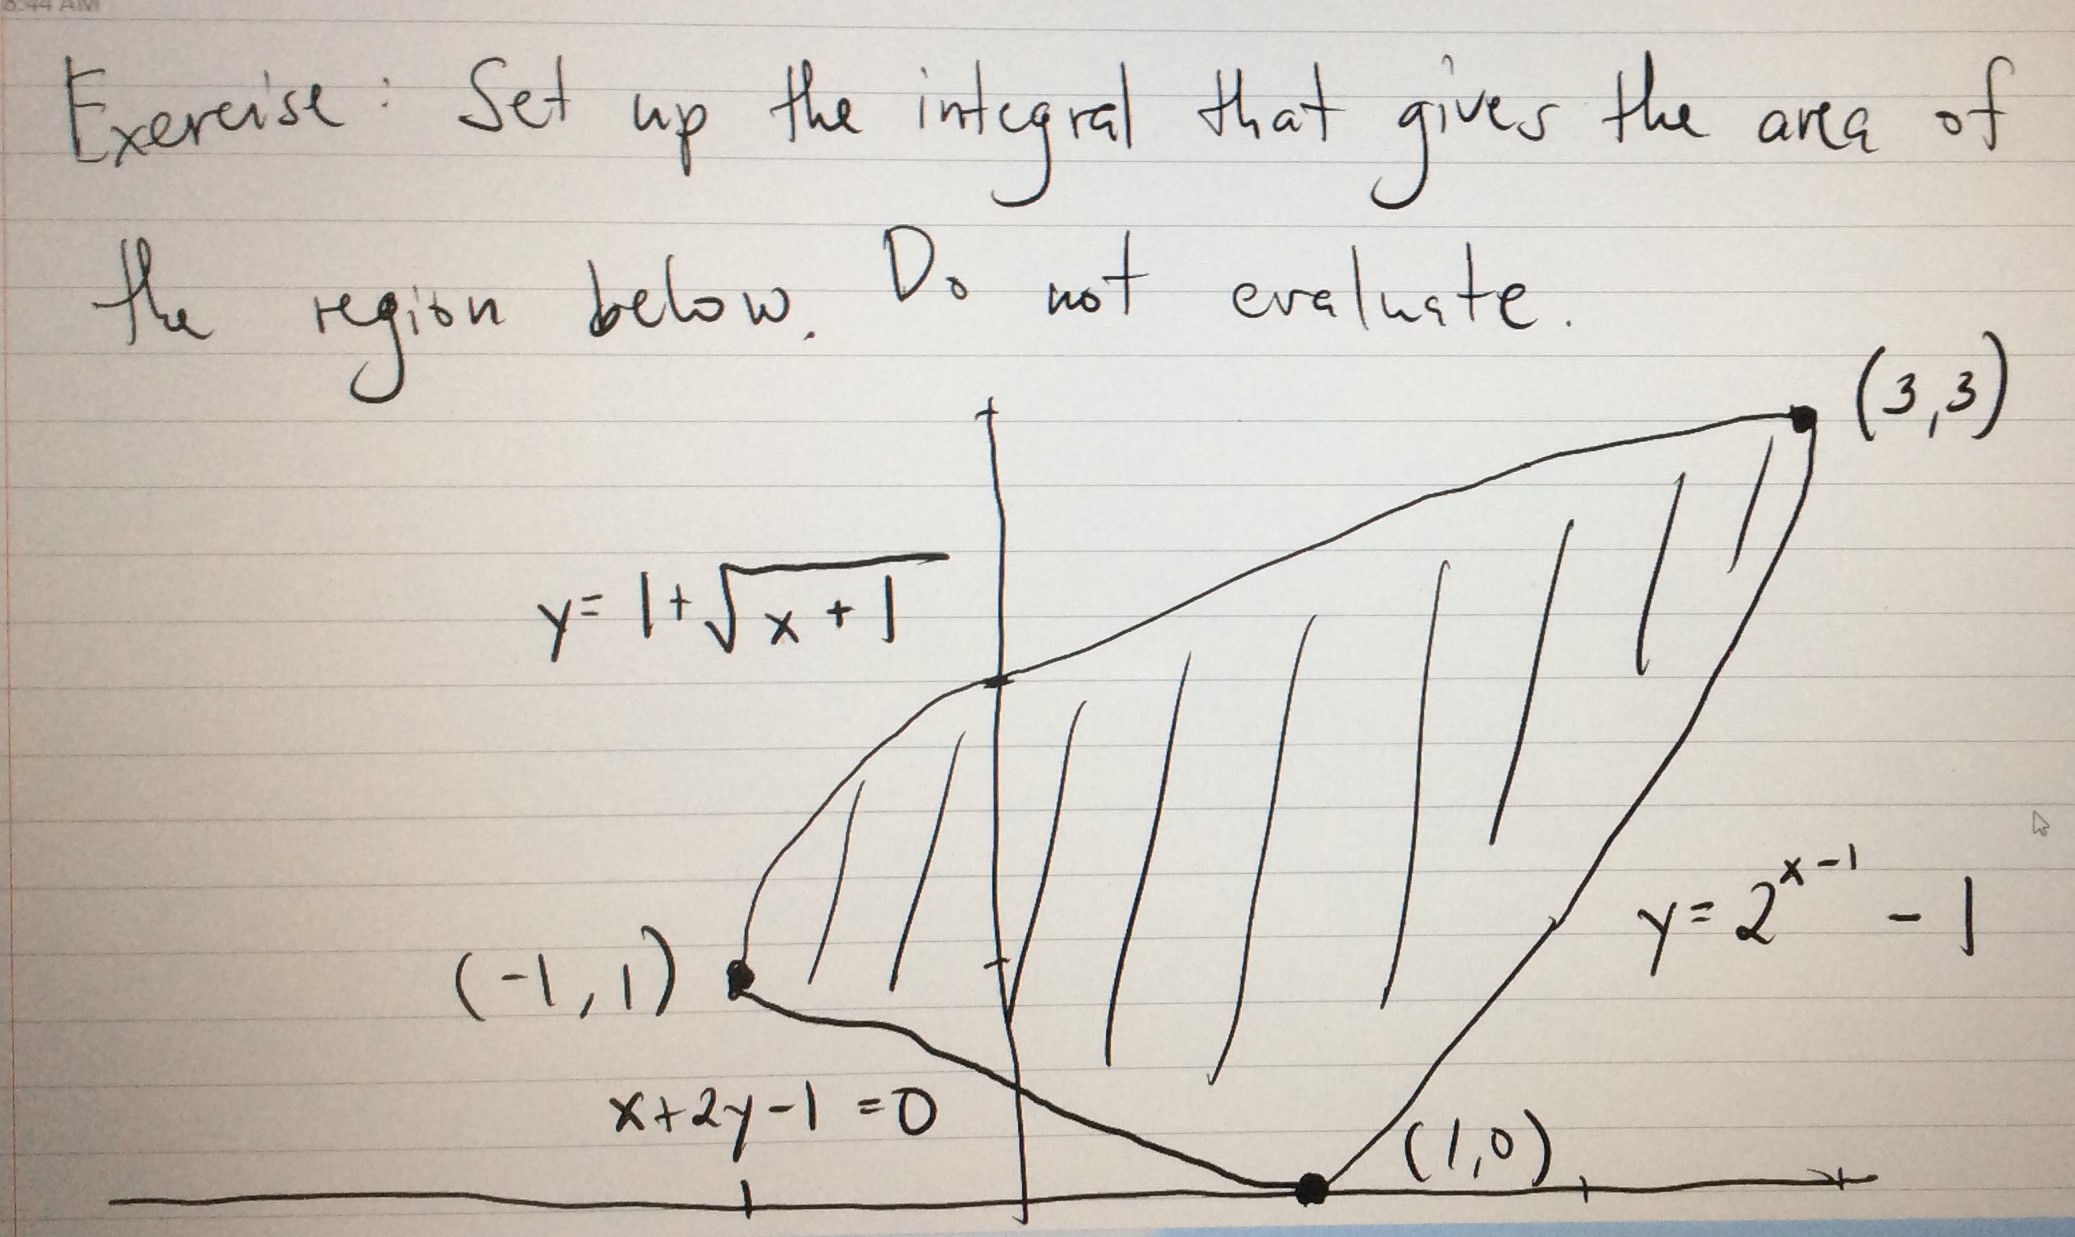 8:44 AM
Exercise: Set up the integral that gives the area of
the region below. Do not evaluate.
(3,3)
y=1+√(x+1)
y=2^(x-1) - 1
(-1,1)
x+2y-1=0
(1,0)